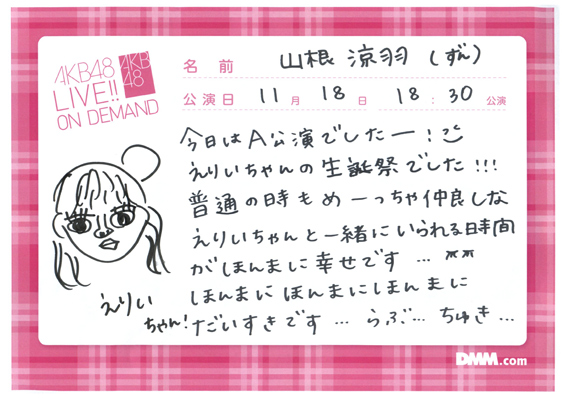 AKB48
LIVE!!
ON DEMAND
AKB
48
名前 山根 涼羽 (ずん)
公演日 11月 18日 18:30 公演
今日はA公演でしたー!
えりいちゃんの生誕祭でした!!!
普通の時もめーっちゃ仲良しな
えりいちゃんと一緒にいられる時間
がほんまに幸せです…
ほんまにほんまにほんまに
だいすきです… らぶ… ちゅき…
えりい
ちゃん!
DMM.com